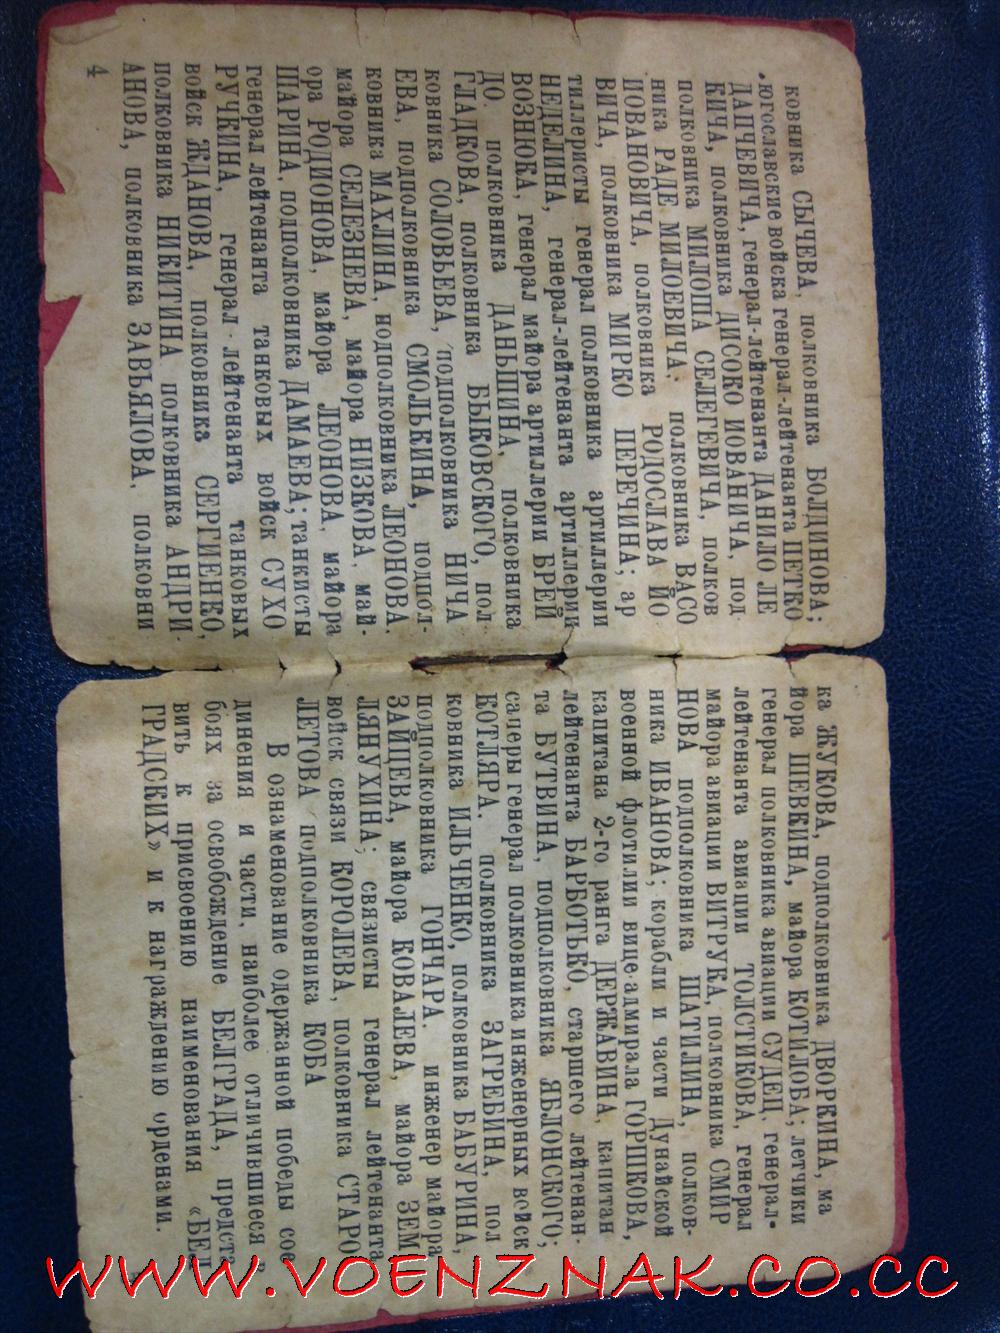 ковника СЫЧЕВА, полковника БОЛДИНОВА;
югославские войска генерал-лейтенанта ПЕТКО
ДАПЧЕВИЧА, генерал-лейтенанта ДАНИЛО ЛЕ
КИЧА, полковника ДИСОКО ИОВАНИЧА, под
полковника МИЛОША СЕЛЕГЕВИЧА, полков
ника РАДЕ МИЛОЕВИЧА; полковника ВАСО
ИОВАНОВИЧА, полковника РОДОСЛАВА ЙО
ВИЧА, полковника МИРКО ПЕРЕЧИНА; ар
тиллеристы генерал полковника артиллерии
НЕДЕЛИНА, генерал-лейтенанта артиллерии
ВОЗНЮКА, генерал майора артиллерии БРЕЙ
ДО. полковника ДАНЬШИНА, полковника
ГЛАДКОВА, полковника БЫКОВСКОГО, пол
ковника СОЛОВЬЕВА, подполковника НИЧА
ЕВА, подполковника СМОЛЬКИНА, подпол-
ковника МАХЛИНА, подполковника ЛЕОНОВА.
майора СЕЛЕЗНЕВА, майора НИЗКОВА, май-
ора РОДИОНОВА, майора ЛЕОНОВА, майора
ШАРИНА, подполковника ДАМАЕВА; танкисты
генерал лейтенанта танковых войск СУХО
РУЧКИНА, генерал-лейтенанта танковых
войск ЖДАНОВА, полковника СЕРГИЕНКО,
полковника НИКИТИНА полковника АНДРИ-
АНОВА, полковника ЗАВЬЯЛОВА, полковни
4
ка ЖУКОВА, подполковника ДВОРКИНА, ма
йора ШЕВКИНА, майора КОТИЛОБА; летчики
генерал полковника авиации СУДЕЦ, генерал-
лейтенанта авиации ТОЛСТИКОВА, генерал
майора авиации ВИТРУКА, полковника СМИР
НОВА подполковника ШАТИЛИНА, полков-
ника ИВАНОВА; корабли и части Дунайской
военной флотилии вице-адмирала ГОРШКОВА,
капитана 2-го ранга ДЕРЖАВИНА, капитан
лейтенанта БАРБОТЬКО, старшего лейтенан-
та БУТВИНА, подполковника ЯБЛОНСКОГО;
сачеры генерал полковника инженерных войск
КОТЛЯРА. полковника ЗАГРЕБИНА, пол
ковника ИЛЬЧЕНКО, полковника БАБУРИНА,
подполковника ГОНЧАРА. инженер майора
ЗАЙЦЕВА, майора КОВАЛЕВА, майора ЗЕМ
ЛЯНУХИНА; связисты генерал лейтенанта
войск связи КОРОЛЕВА, полковника СТАРО
ЛЕТОВА подполковника КОБА
В ознаменование одержанной победы сое
динения и части, наиболее отличившиеся в
боях за освобождение БЕЛГРАДА, предста
вить к присвоению наименования «БЕЛ
ГРАДСКИХ» и к награждению орденами.
WWW.VOENZNAK.CO.CC